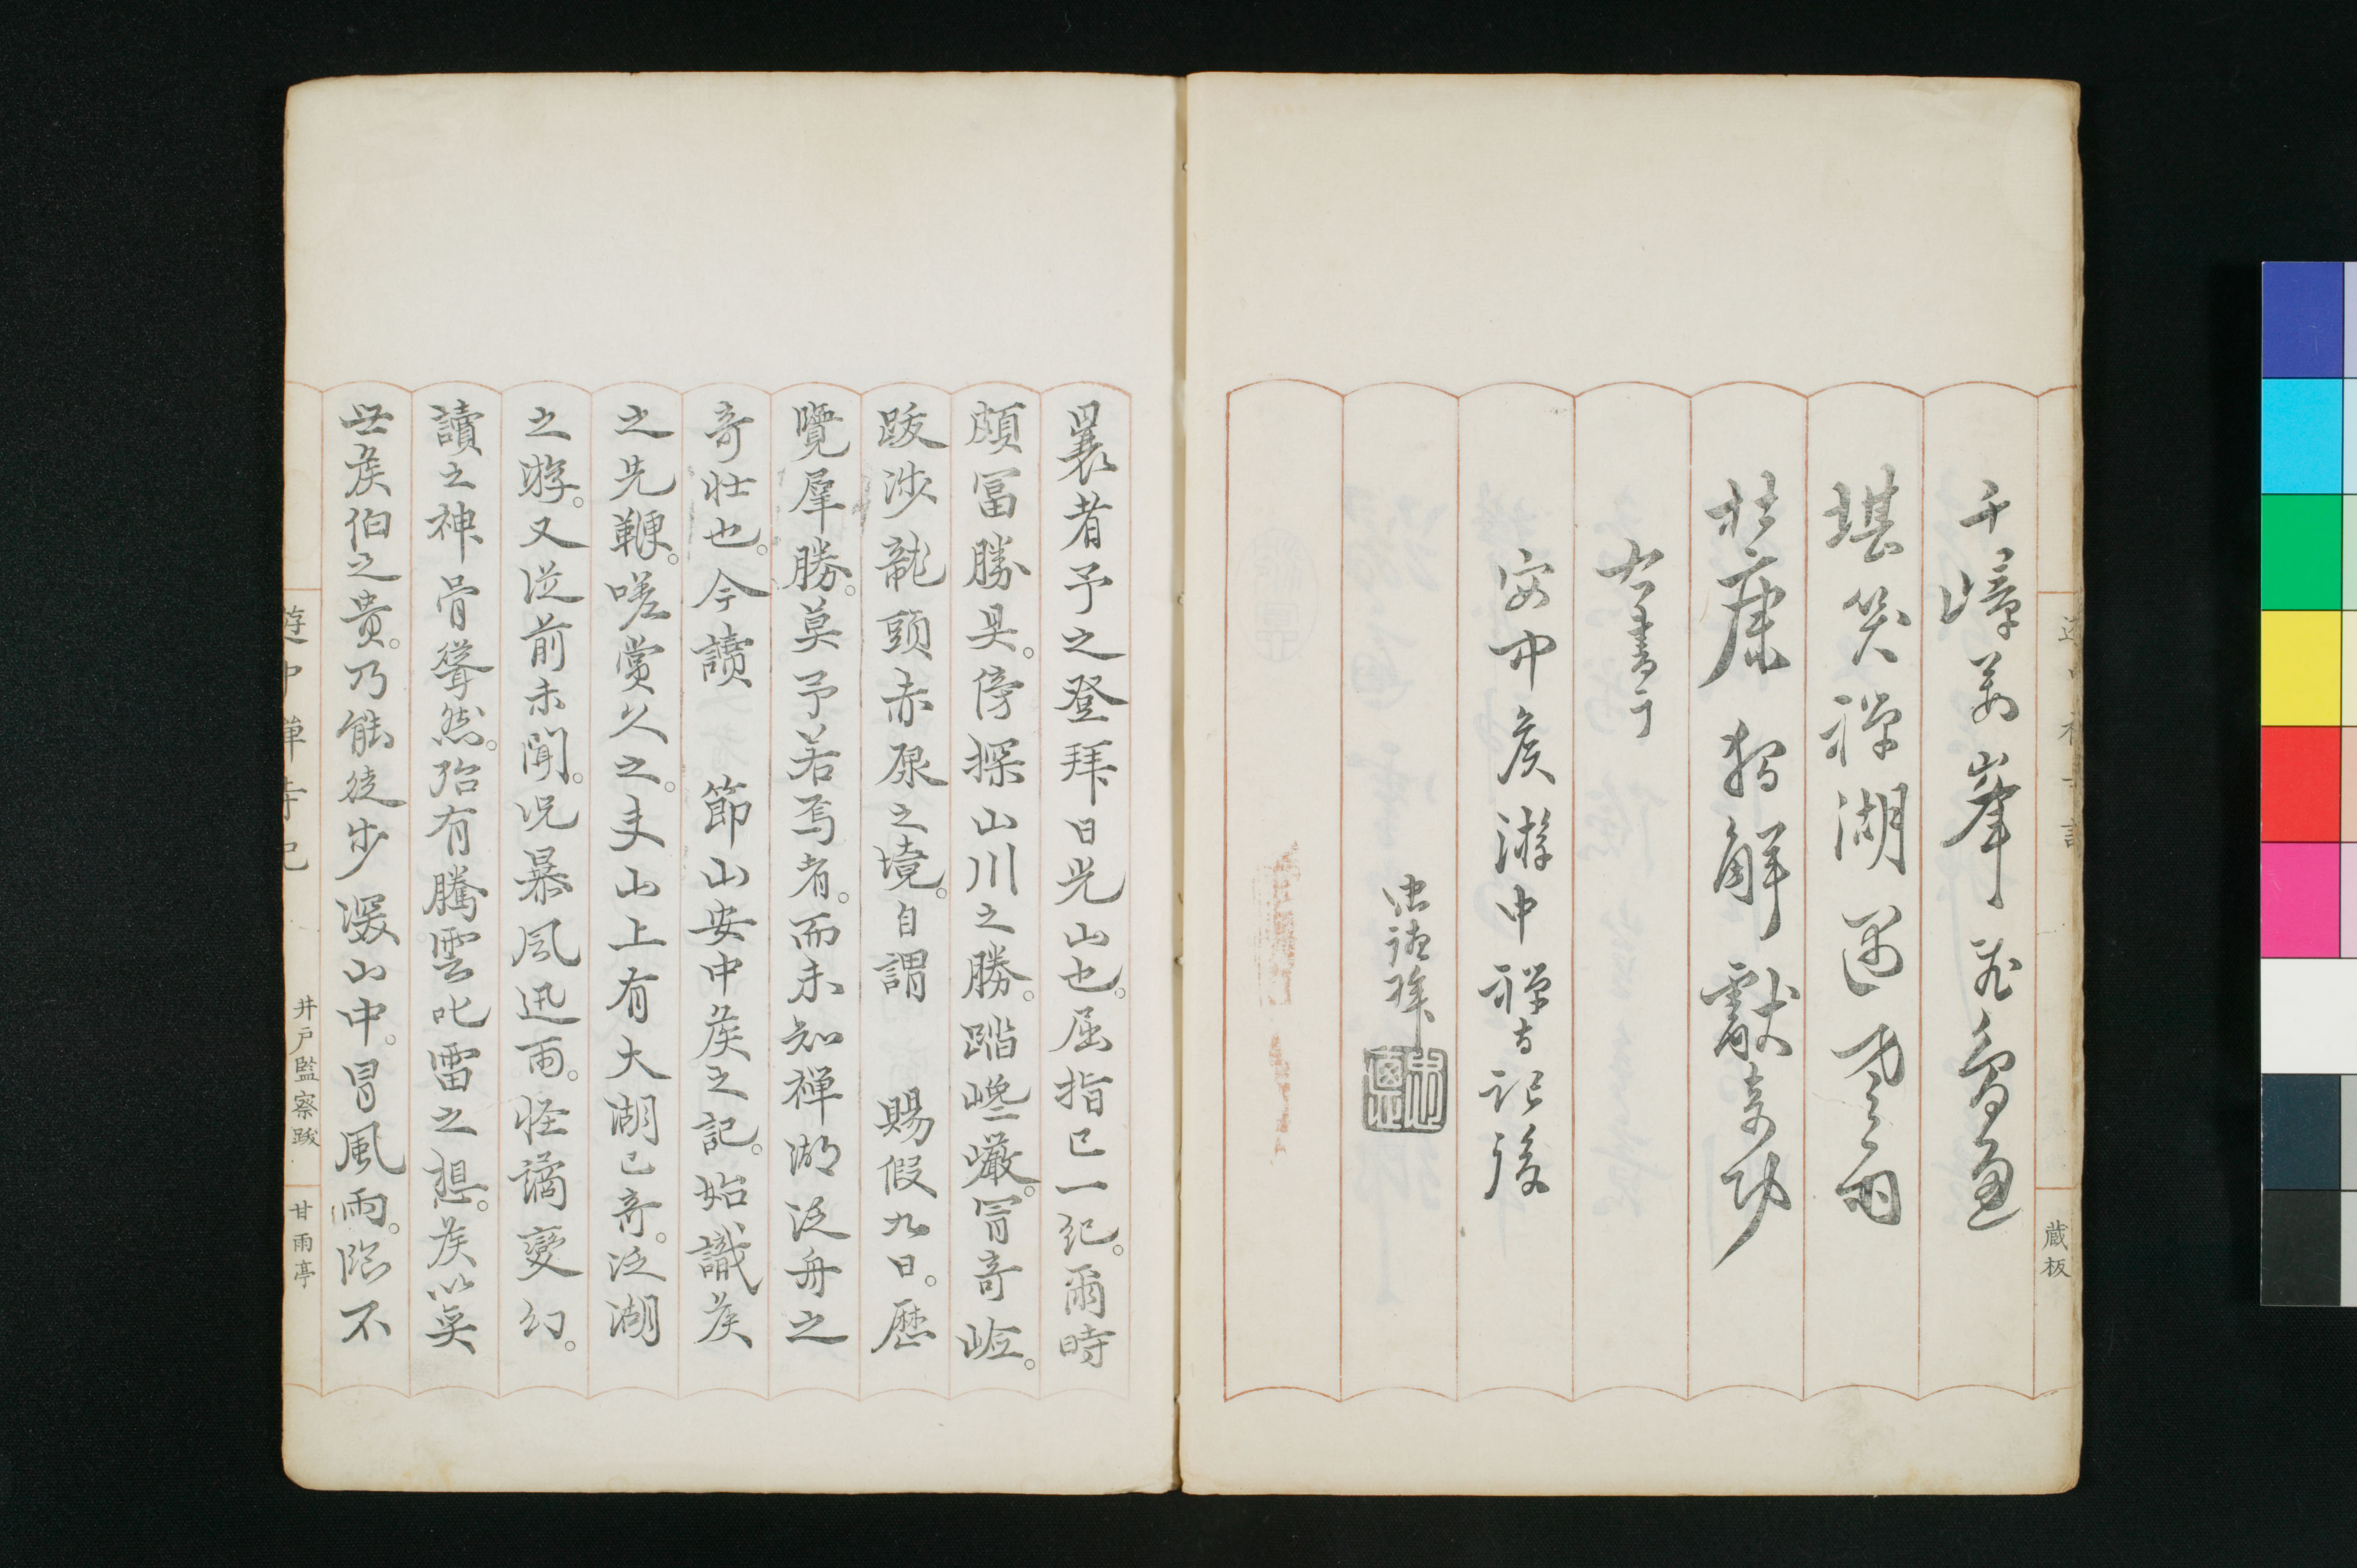 千嶂萬峯
堪笑禪湖遇風雨
壮康 解獻奇功
右書
安中矦游中禅寺記後
蔵板
曩者予之登拜日光山也。屈指已一紀。爾時
頗冨勝具。傍探山川之勝。踏巉巌。冐奇嶮。
跋渉龍頭赤㞐之境。自謂 賜假九日。歴
覽羣勝。莫予若焉者。而未知禅湖泛舟之
奇壮也。今讀 節山安中矦之記。始識矦
之先鞭。嗟賞久之。夫山上有大湖已奇。泛湖
之游。又従前未聞。況暴風迅雨。怪譎變幻。
讀之神骨聳然。殆有騰雲叱雷之想。矦以奕
世矦伯之貴。乃能徒歩深山中。冒風雨。臨不
遊中禅寺記
井戸監察跋
甘雨亭